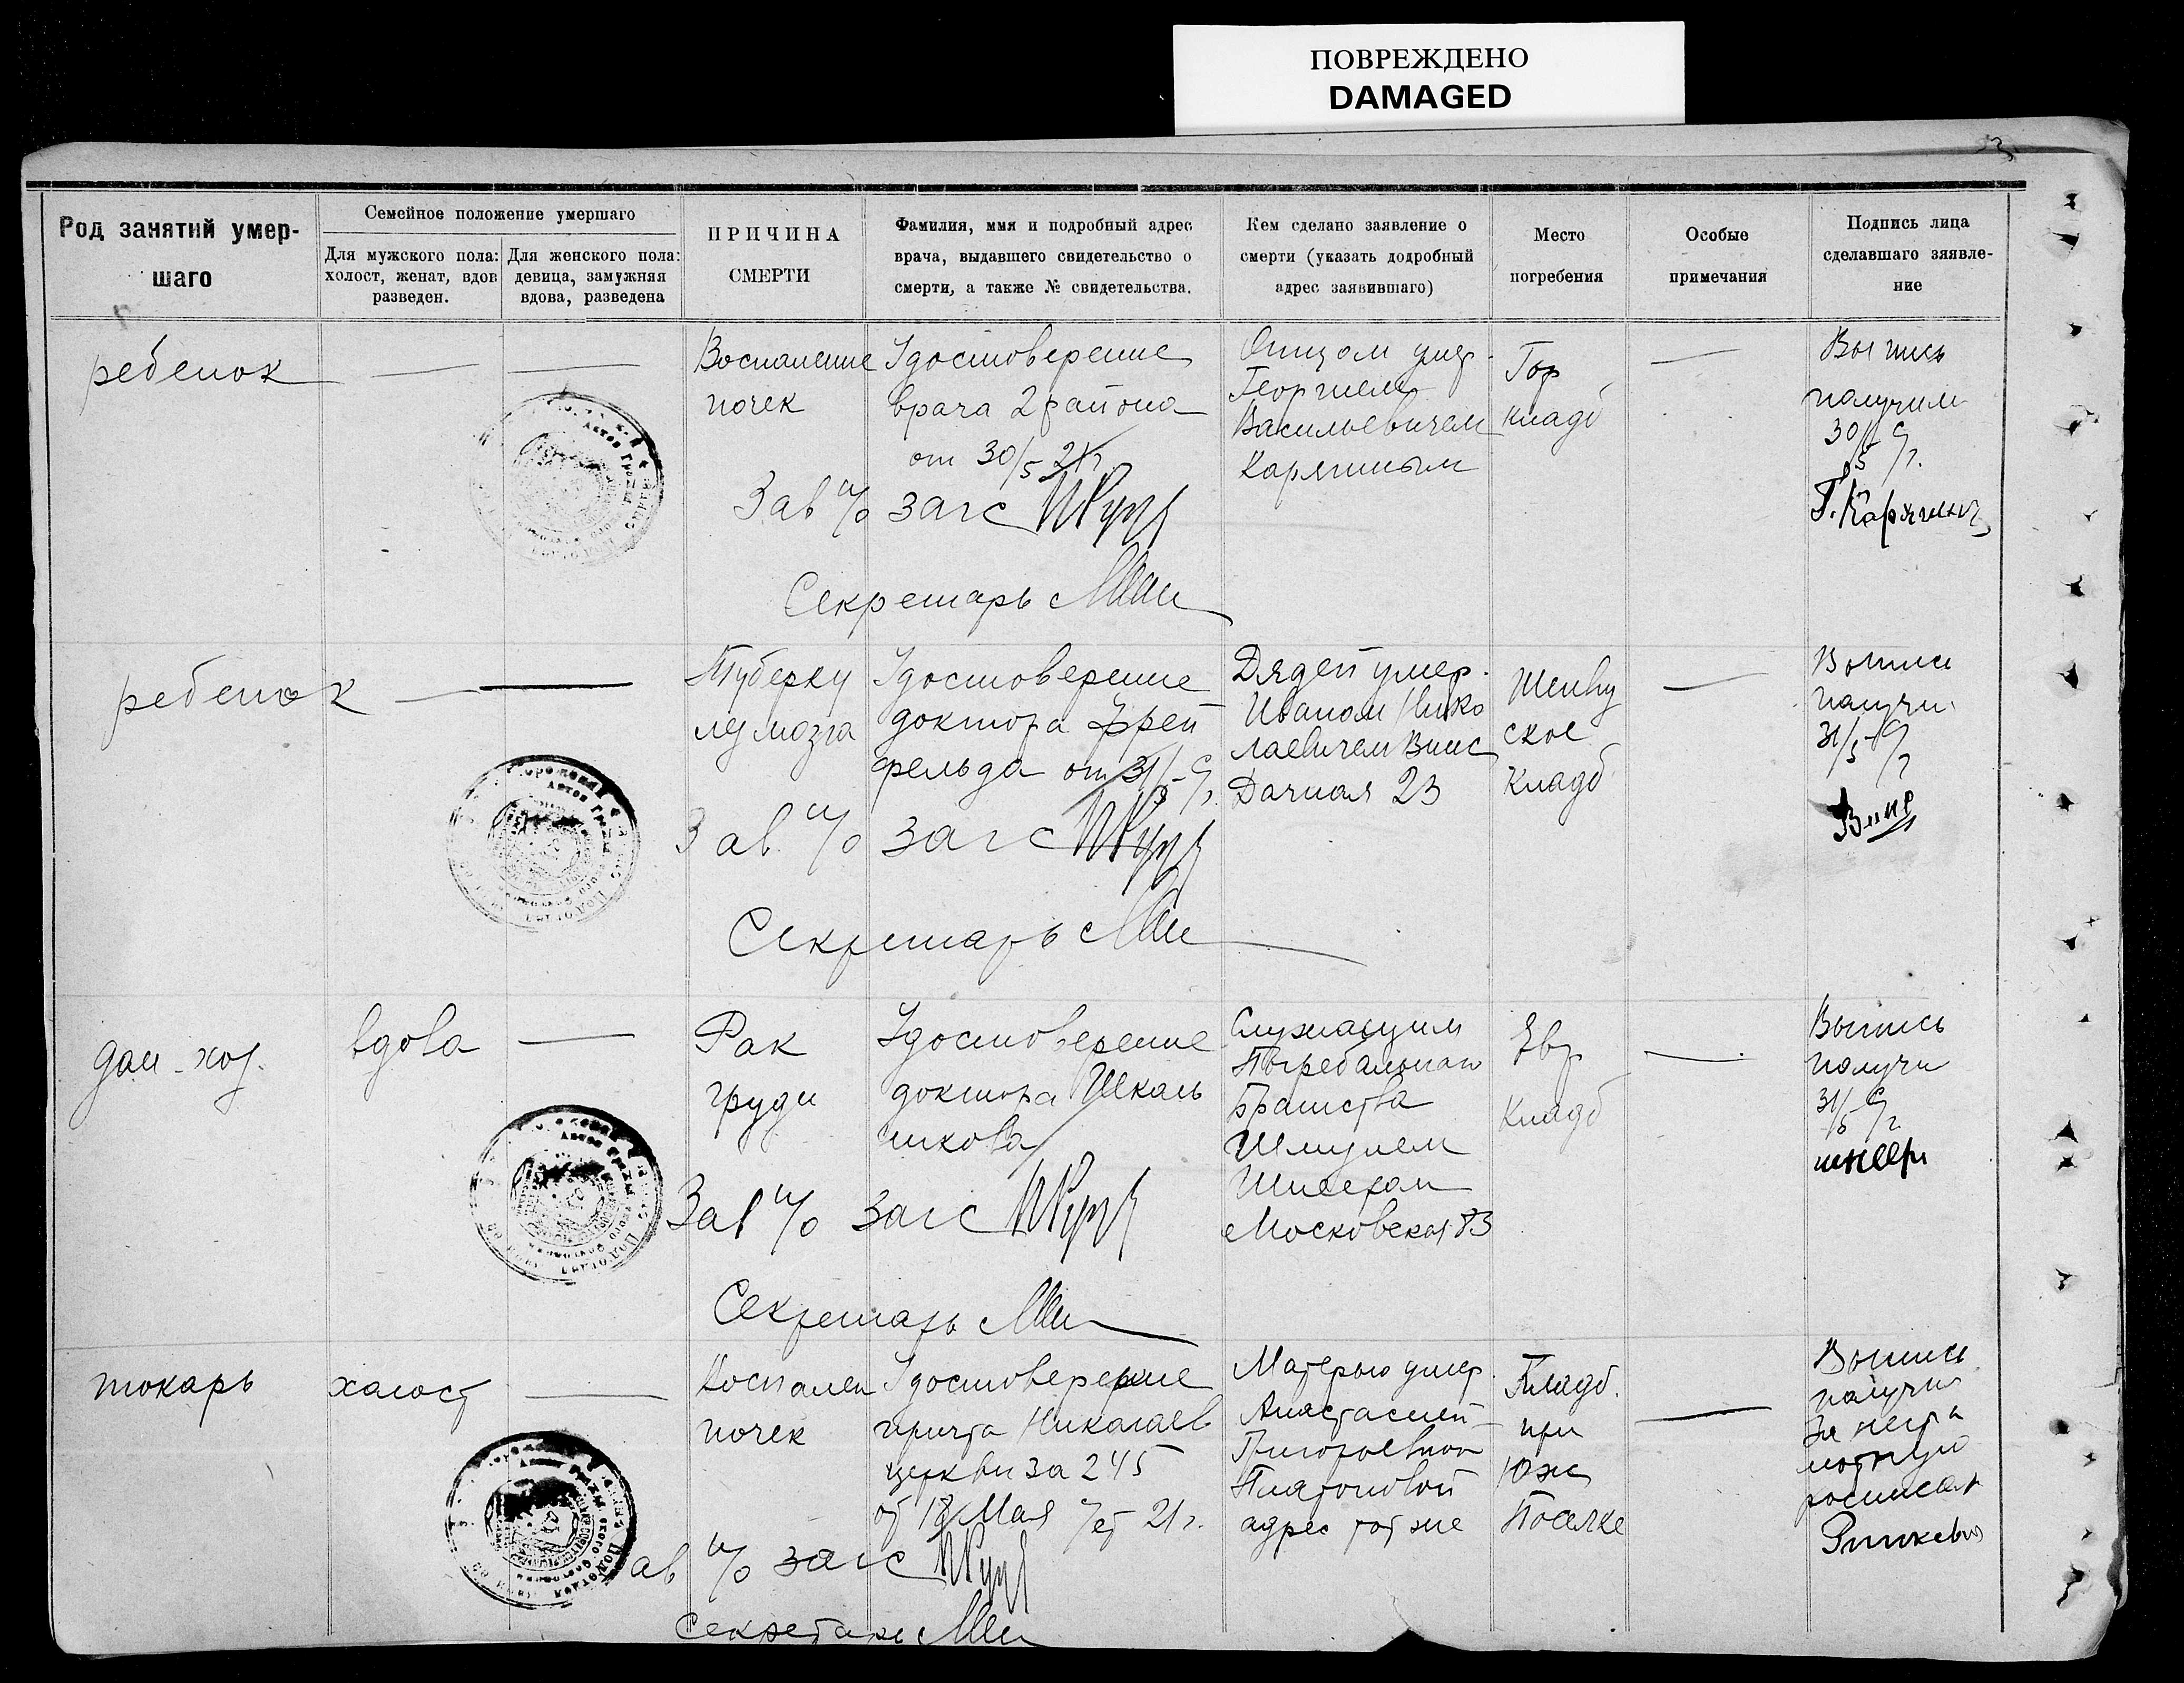 ПОВРЕЖДЕНО
DAMAGED
3
Род занятий умер-
шаго
Семейное положение умершаго
Для мужского пола:
холост, женат, вдов
разведен.
Для женского пола:
девица, замужняя
вдова, разведена
ПРИЧИНА
СМЕРТИ
Фамилия, ммя и подробный адрес
врача, выдавшего свидетельство о
смерти, а также № свидетельства.
Кем сделано заявление о
смерти (указать додробный
адрес заявившаго)
Место
погребения
Особые
примечания
Подпись лица
сделавшаго зяявле-
ние
ребенок
Воспаление
почек
Удостоверение
врача 2 района
от 30/5 21г.
Отцом умер.
Георгием
Васильевичем
Карягиным
Гор
кладб
Выпись
получил
30/5
Г. Карягин
Зав п/о загс
Секретарь
ребенок
Туберку
лез мозга
Удостоверение
доктора Фрей
фельда от 31/5
Дядей умер.
Иваном Нико
лаевичем Винс
Дачная 23
ское
кладб
Выписи
получи
31/5
Винс
Зав п/о загс
Секретарь
дом. хоз.
вдова
Рак
груди
Удостоверение
доктора Школь
никова
Служащим
Погребальнаго
Братства
Шмулем
Московская 83
Евр
Кладб
Выпись
получи
31/5
Зав п/о загс
Секретарь
токарь
холост
Воспален
почек
Удостоверение
причта Николаев
церкви за 245
от 18 Мая 21 г.
Матерью умер.
Анастасией
Григорьевной
Платоновой
адрес тот же
Кладб.
при
Юж
Поселке
Выпись
получил
за негра
мотную
росписал
ав п/о загс
Секретарь